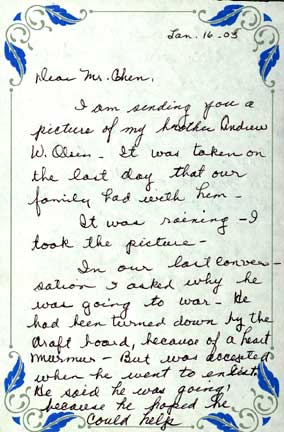 Jan. 16-03
Dear Mr. Chen,
I am sending you a
picture of my brother Andrew
W. Olsen - It was taken on
the last day that our
family had with him -
It was raining - I
took the picture -
In our last conver-
sation I asked why he
was going to war - He
had been turned down by the
draft board, because of a heart
murmur - But was accepted
when he went to enlist.
He said he was going,
because he hoped he
could help